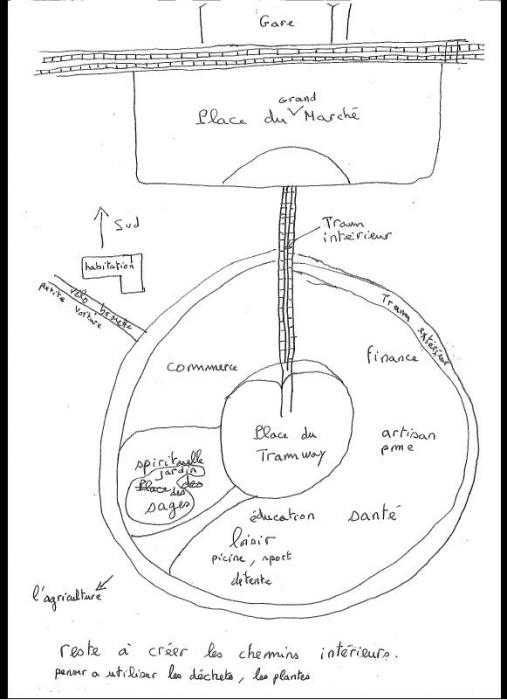 Gare
Place du Grand Marché
Sud
Tram intérieur
habitation
vélo
petite voiture
Tram extérieur
commerce
finance
Place du
Tramway
artisan
pme
spirituelle
jardin
Place des
des
sages
éducation
santé
loisir
picine, sport
détente
l'agriculture
reste à créer les chemins intérieurs.
penser a utiliser les déchets, les plantes